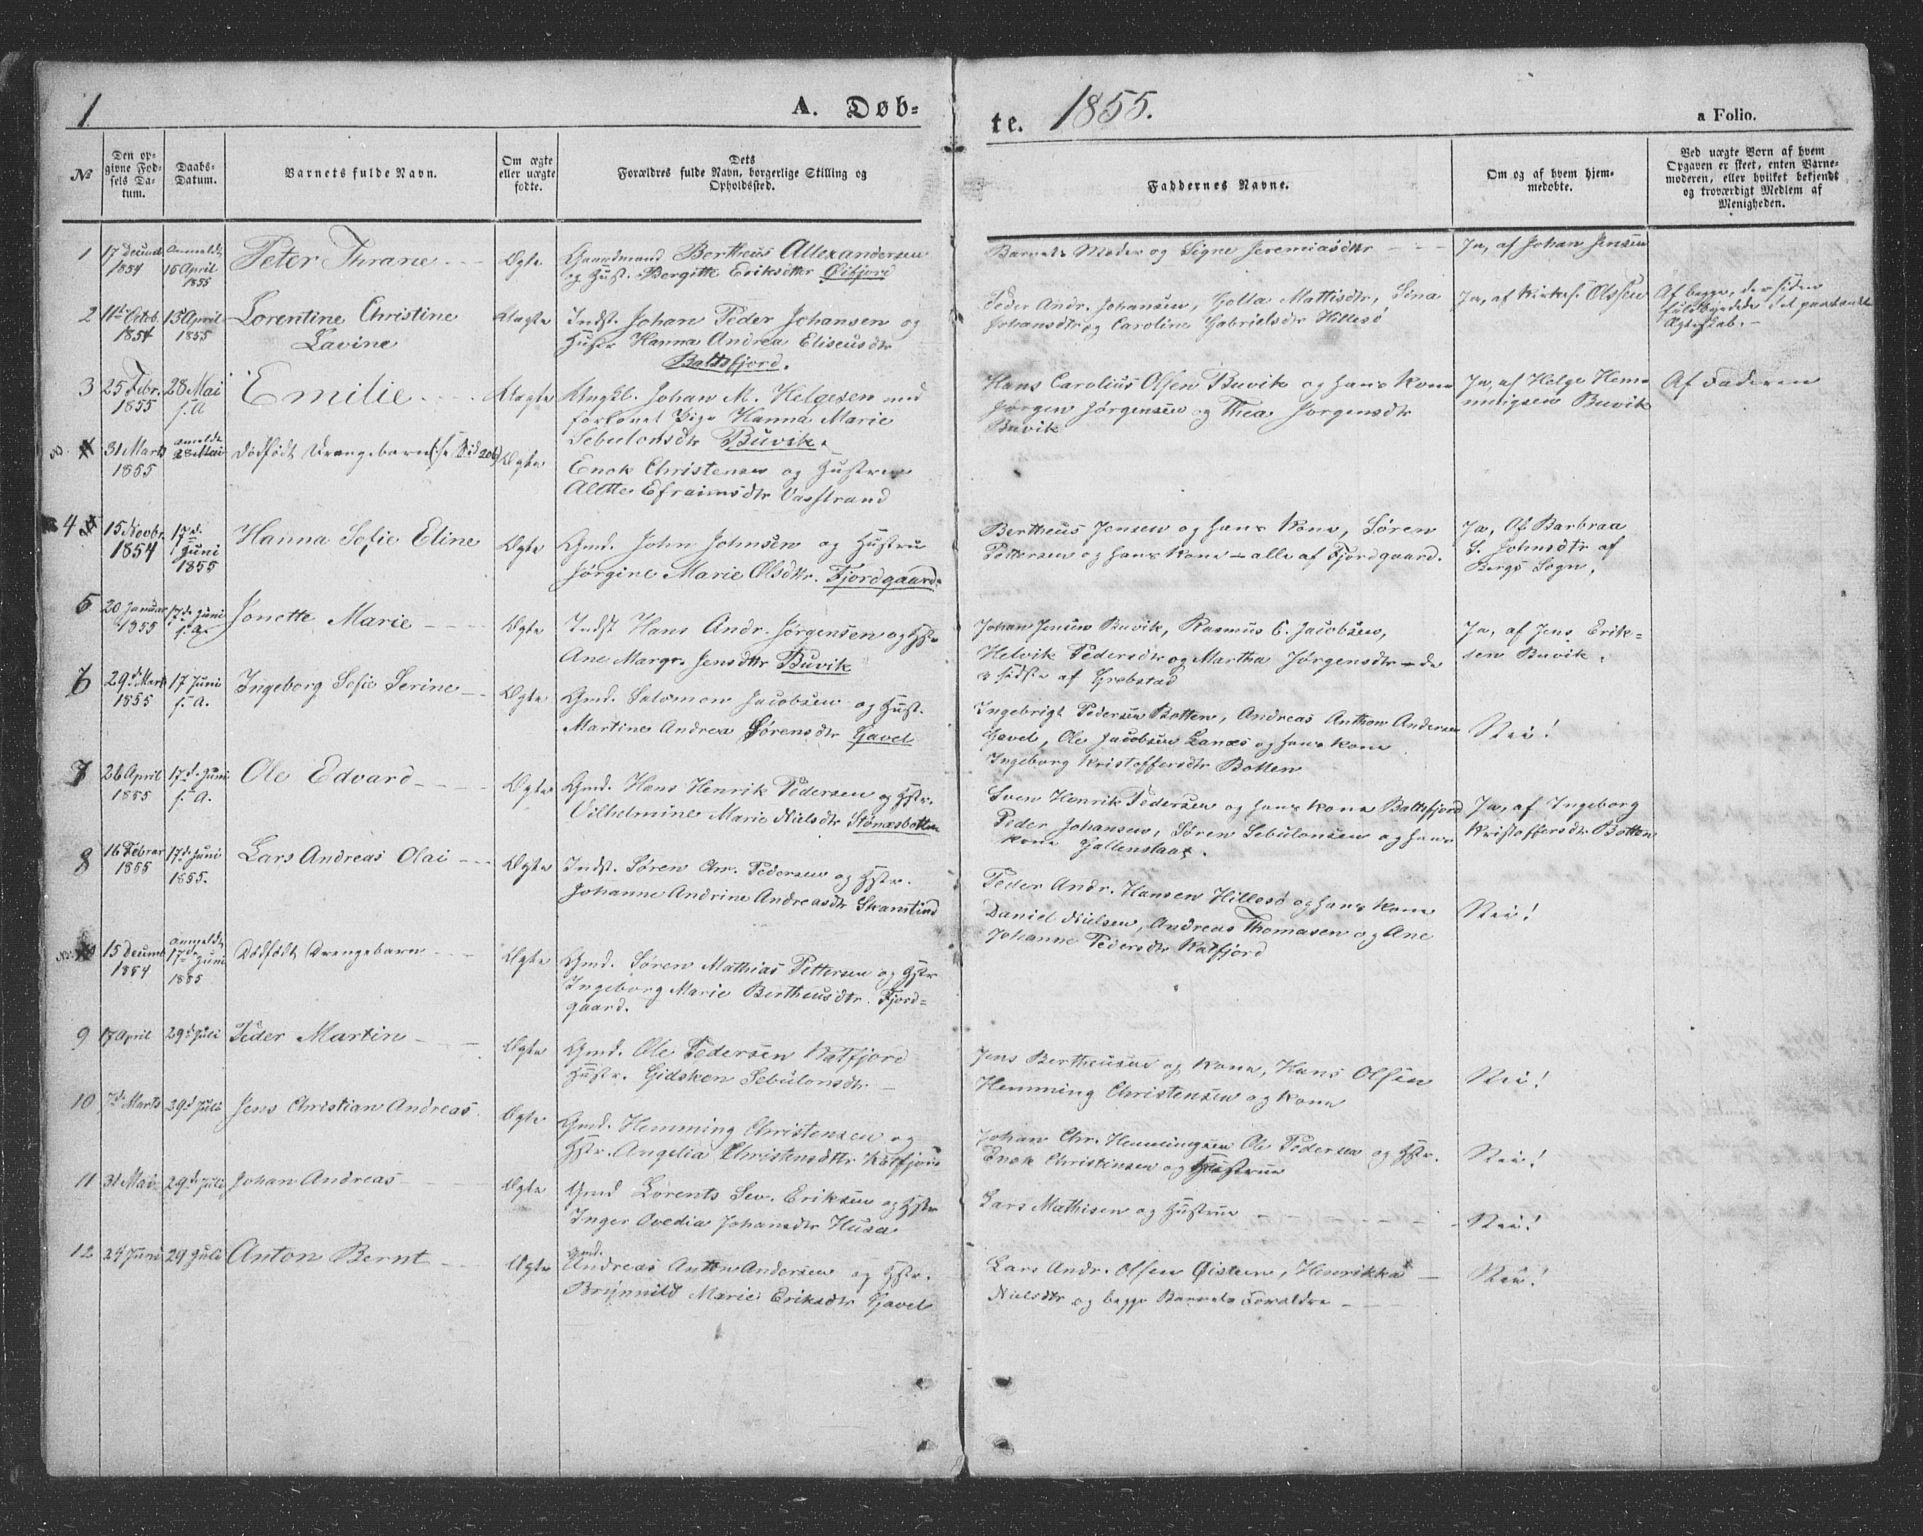 1.
A. Døb=
te. 1855.
a Folio.
№
Den op=
givne Fød=
sels Da=
tum.
Daabs=
Datum.
Barnets fulde Navn.
Om ægte
eller uægte
fødte.
Dets
Forældres fulde Navn, borgerlige Stilling og
Opholdssted.
Faddernes Navne.
Om og af hvem hjem=
medøbte.
Ved uægte Børn af hvem
Opgaven er skeet, enten Barne=
moderen, eller hvilket bekjendt
og troværdigt Medlem af
Menigheden.
1
17 Decemb
1854
Anmeldt
15 April
1855
Peter Thrane
Ægte
Gaardmand Bertheus Allexandersen
og Hust. Bergitte Eriksdttr Øifjord
Barnets Moder og Signe Jeremiasdttr
Ja, af Johan Jensen
2
11te Octob.
1854
15 April
1855
Lorentine Christine
Lavine
Uægte
Indst. Johan Peder Johansen og
Hustr Hanna Andrea Eliseusdtr
Baltsfjord.
Peder Andr. Johansen, Golla Mattisdtr, Sina
Johansdtr og Caroline Gabrielsdtr Hillesø
Ja, af Kirkes. Olssen
Af begge, der siden
fuldbyrdede det paatænkte
Ægteskab.
3
25 Febr.
1855
28 Mai
s. A
Emilie
Uægte
Ungkl. Johan M. Helgesen med
forlovet Pige Hanna Marie
Sebulonsdtr Buvik.
Hans Carolius Olsen Buvik og hans Kone
Jørgen Jørgensen og Thea Jørgensdtr
Buvik
Ja, af Helge Hem=
mingsen Buvik
Af Faderen
31 Marts
1855
anmeldt
28 Mai
Dødfødt Drengebarn (se Sid 206)
Ægte
Enok Christensen og Hustrue
Aldtte Efraimsdtr Vasstrand
4
15 Novbr.
1854
17d.
Juni
1855
Hanna Sofie Eline
Ægte
Gmd. John Johnsen og Hustru
Jørgine Marie Olsdtr. Fjordgaard.
Bertheus Jensen og hans Kone, Søren
Pettersen og hans Kone – alle af Fjordgaard.
Ja, Af Barbraa
S. Johnsdtr af
Bergs Sogn.
5
20 Januar
1855
17d. Juni
s. A.
Jonette Marie
Ægte
Indst Hans Andr. Jørgensen og Hstr
Ane Margr. Jensdttr Buvik
Johan Jensen Buvik, Rasmus C. Jacobsen,
Helvik Pedersdtr og Martha Jørgensdtr – de
3 sidste af Grøbstad
Ja, af Jens Erik=
sen Buvik.
6
29d. Marts
1855
17 Juni
s. A.
Ingeborg Sofie Serine
Ægte
Gmd. Salomon Jacobsen og Hust.
Martine Andrea Sørensdtr Gavel
Ingebrigt Pedersen Botten, Andreas Anthon Andersen
Gavel, Ole Jacobsen Lanæs og hans Kone
Ingeborg Kristoffersdtr Botten
Nei!
7
26 April
1855
17d. Juni
s. A.
Ole Edvard
Ægte
Gmd. Hans Henrik Pedersen og Hstr.
Vilhelmine Marie Nielsdtr Stønæsbotten
Sven Henrik Pedersen og hans Kone Baltsfjord
Peder Johansen, Søren Sebulonsen og hans
Kone
Ja, af Ingeborg
Kristoffersdtr Botten
8
16 Februar
1855
17d. Juni
1855.
Lars Andreas Olai
Ægte
Indst. Søren Chr. Pedersen og Hstr.
Johanne Andrine Andreasdtr Skamtind
Peder Andr. Hansen Hillesø og hans Kone
Daniel Nielsen, Andreas Thomasen og Ane
Johanne Pedersdtr Katfjord
Nei!
15 Decemb
1854
anmeldt
17d. Juni
1855
Dødfødt Drengebarn
Ægte
Gmd. Søren Mathias Pettersen og Hstr
Ingeborg Marie Bertheusdtr. Fjord=
gaard.
9
17 April
29d Juli
Peder Martin
Ægte
Gmd. Ole Pedersen Katfjord
Hustr. Gidsken Sebulonsdtr
Jens Bertheusen og Kone, Hans Olsen
Hemming Christensen og Kone
Nei!
10
7d. Marts
29d Juli
Jens Christian Andreas
Ægte
Gmd. Hemming Christensen og
Hstr. Angelia Christensdttr Katfjord
Johan Chr. Hemmingsen Ole Pedersen og Hstr.
Enok Christensen og Hustrue
Nei!
11
31 Mai
29d Juli
Johan Andreas
Ægte
Gmd Lorents Sev. Eriksen og Hstr
Inger Ovedia Johansdtr Husø
Lars Mathisen og Hustrue
Nei!
12
24 Juni
29 Juli
Anton Bernt
Ægte
Gmd.
Andreas Anton Andersen og Hstr.
Brynnild Marie Eriksdtr Gavel
Lars Andr. Olsen Øisteen, Henrikka
Nielsdtr og begge Barnets Forældre
Nei!